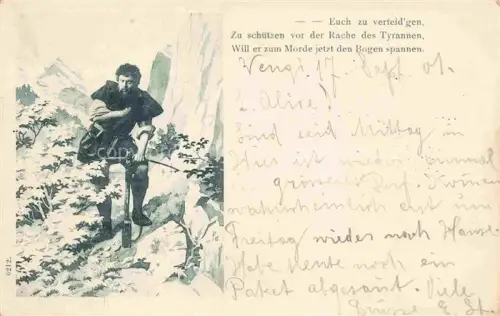 — — Euch zu verteid'gen,
Zu schützen vor der Rache des Tyrannen,
Will er zum Morde jetzt den Bogen spannen.
Wengi 17. Sept 01.
L. Alice!
Sind seid Mittag in
Hier ist wieder einmal
grosses Komme
wahrscheinlich erst am
Freitag wieder nach Hause.
Habe heute noch ein
Paket abgesant. Viele
Grüsse E. St.
6212.